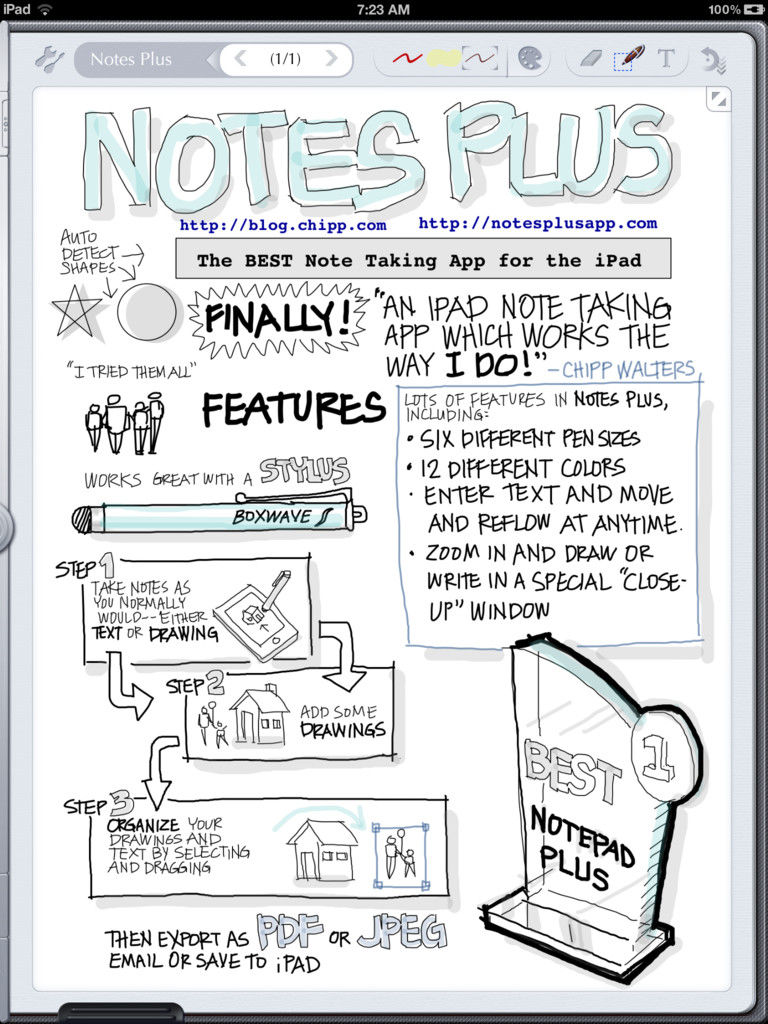 iPad
7:23 AM
100%
Notes Plus
(1/1)
T
NOTES PLUS
http://blog.chipp.com
http://notesplusapp.com
AUTO
DETECT
SHAPES
The BEST Note Taking App for the iPad
FINALLY!
"AN IPAD NOTE TAKING
APP WHICH WORKS THE
WAY I DO!" - CHIPP WALTERS
"I TRIED THEM ALL"
FEATURES
LOTS OF FEATURES IN NOTES PLUS,
INCLUDING:
• SIX DIFFERENT PEN SIZES
• 12 DIFFERENT COLORS
• ENTER TEXT AND MOVE
AND REFLOW AT ANYTIME.
• ZOOM IN AND DRAW OR
WRITE IN A SPECIAL "CLOSE-
UP" WINDOW
WORKS GREAT WITH A STYLUS
BOXWAVE
STEP 1
TAKE NOTES AS
YOU NORMALLY
WOULD -- EITHER
TEXT OR DRAWING
STEP 2
ADD SOME
DRAWINGS
STEP 3
ORGANIZE YOUR
DRAWINGS AND
TEXT BY SELECTING
AND DRAGGING
THEN EXPORT AS PDF OR JPEG
EMAIL OR SAVE TO iPAD
1
BEST
NOTEPAD
PLUS